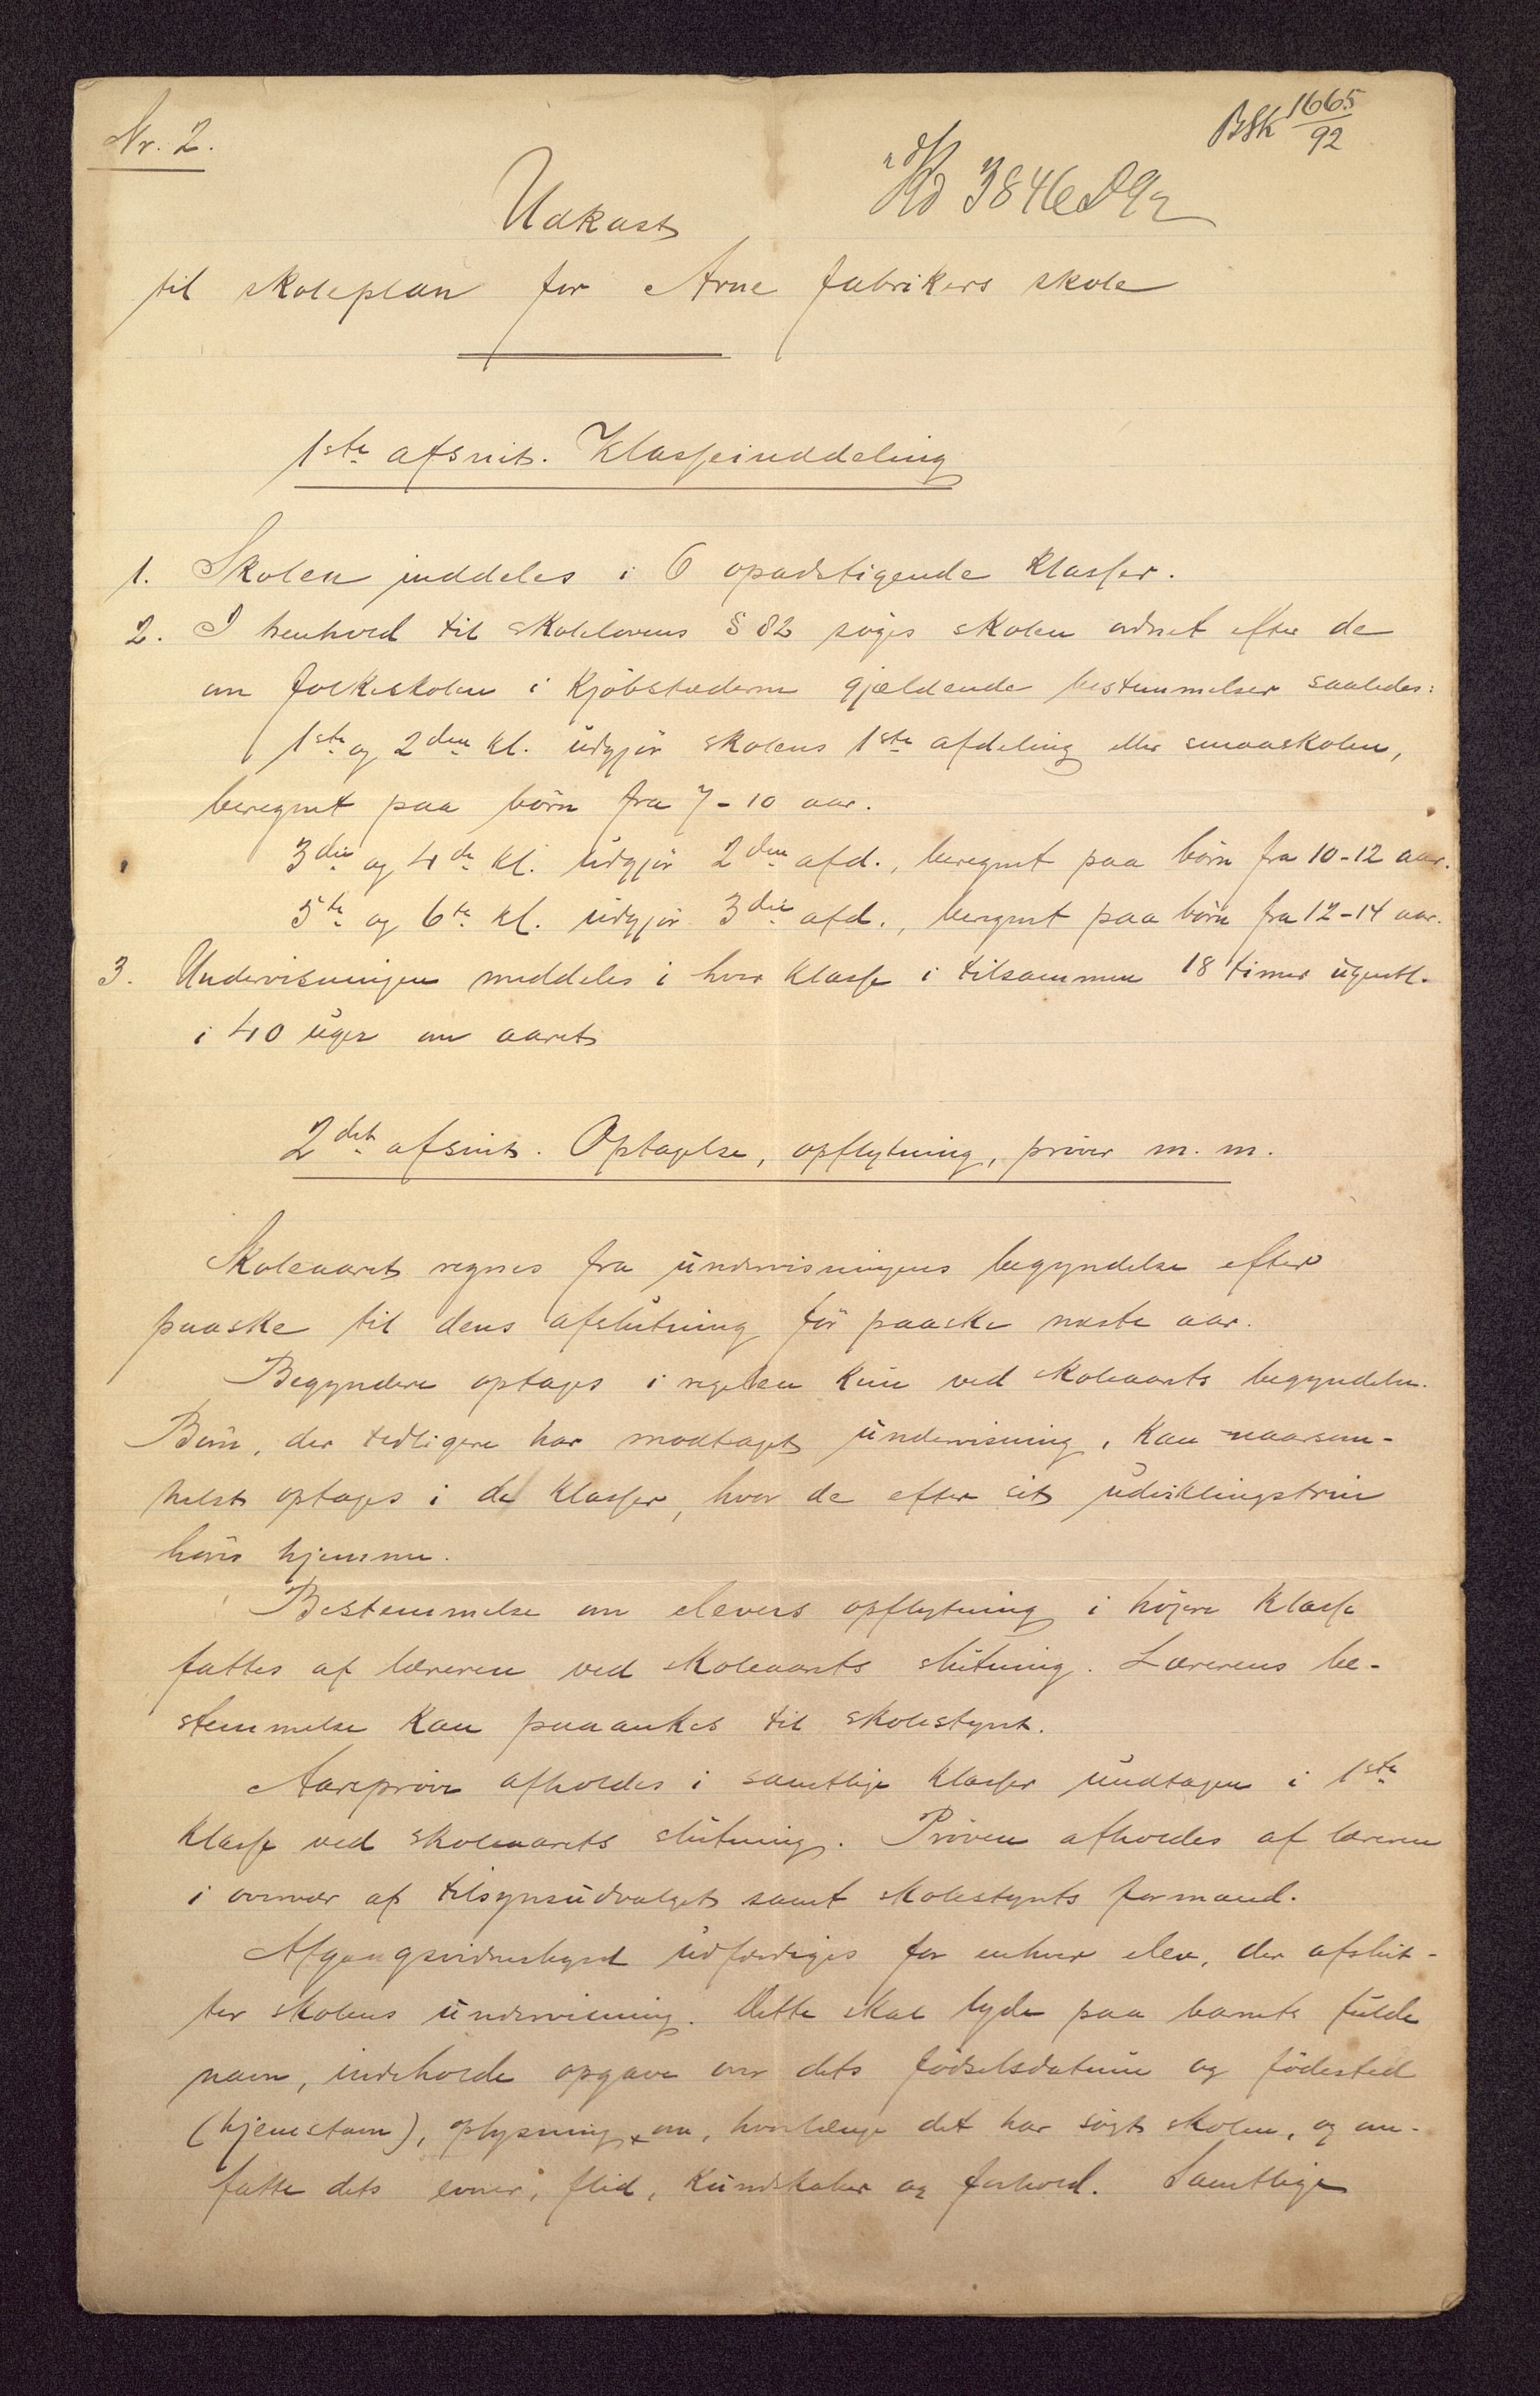 Nr. 2.
BSK 1665/92
Kd 3846 D 92
Udkast
til skoleplan for Arne fabrikers skole
1ste afsnit. Klasseinddeling
1. Skolen inddeles i 6 opadstigende klasser.
2. I henhold til skolelovens § 82 søges skolen ordnet efter de
om folkeskolen i kjøbstæderne gjældende bestemmelser saaledes:
1ste og 2den kl. udgjør skolens 1ste afdeling eller smaaskolen,
beregnet paa børn fra 7-10 aar.
3die og 4de kl. udgjør 2den afd., beregnet paa børn fra 10-12 aar.
5te og 6te kl. udgjør 3die afd., beregnet paa børn fra 12-14 aar.
3. Undervisningen meddeles i hver klasse i tilsammen 18 timer ugentl.
i 40 uger om aaret
2det afsnit. Optagelse, opflytning, prøver m. m.
Skoleaaret regnes fra undervisningens begyndelse efter
paaske til dens afslutning før paaske næste aar.
Begyndere optages i regelen kun ved skoleaarets begyndelse.
Børn, der tidligere har modtaget undervisning, kan naarsom-
helst optages i de klasser, hvor de efter sit udviklingstrin
hører hjemme.
Bestemmelse om elevers opflytning i højere klasse
fattes af læreren ved skoleaarets slutning. Lærerens be-
stemmelse kan paaankes til skolestyret.
Aarsprøve afholdes i samtlige klasser undtagen i 1ste
klasse ved skoleaarets slutning. Prøven afholdes af læreren
i overvær af tilsynsudvalget samt skolestyrets formand.
Afgangsvidnesbyrd udfærdiges for enhver elev, der afslut-
ter skolens undervisning. Dette skal lyde paa barnets fulde
navn, indeholde opgave om dets fødselsdatum og fødested
(hjemstavn), oplysning om, hvorlænge det har søgt skolen, og om-
fatte dets evner, flid, kundskaber og forhold. Samtlige